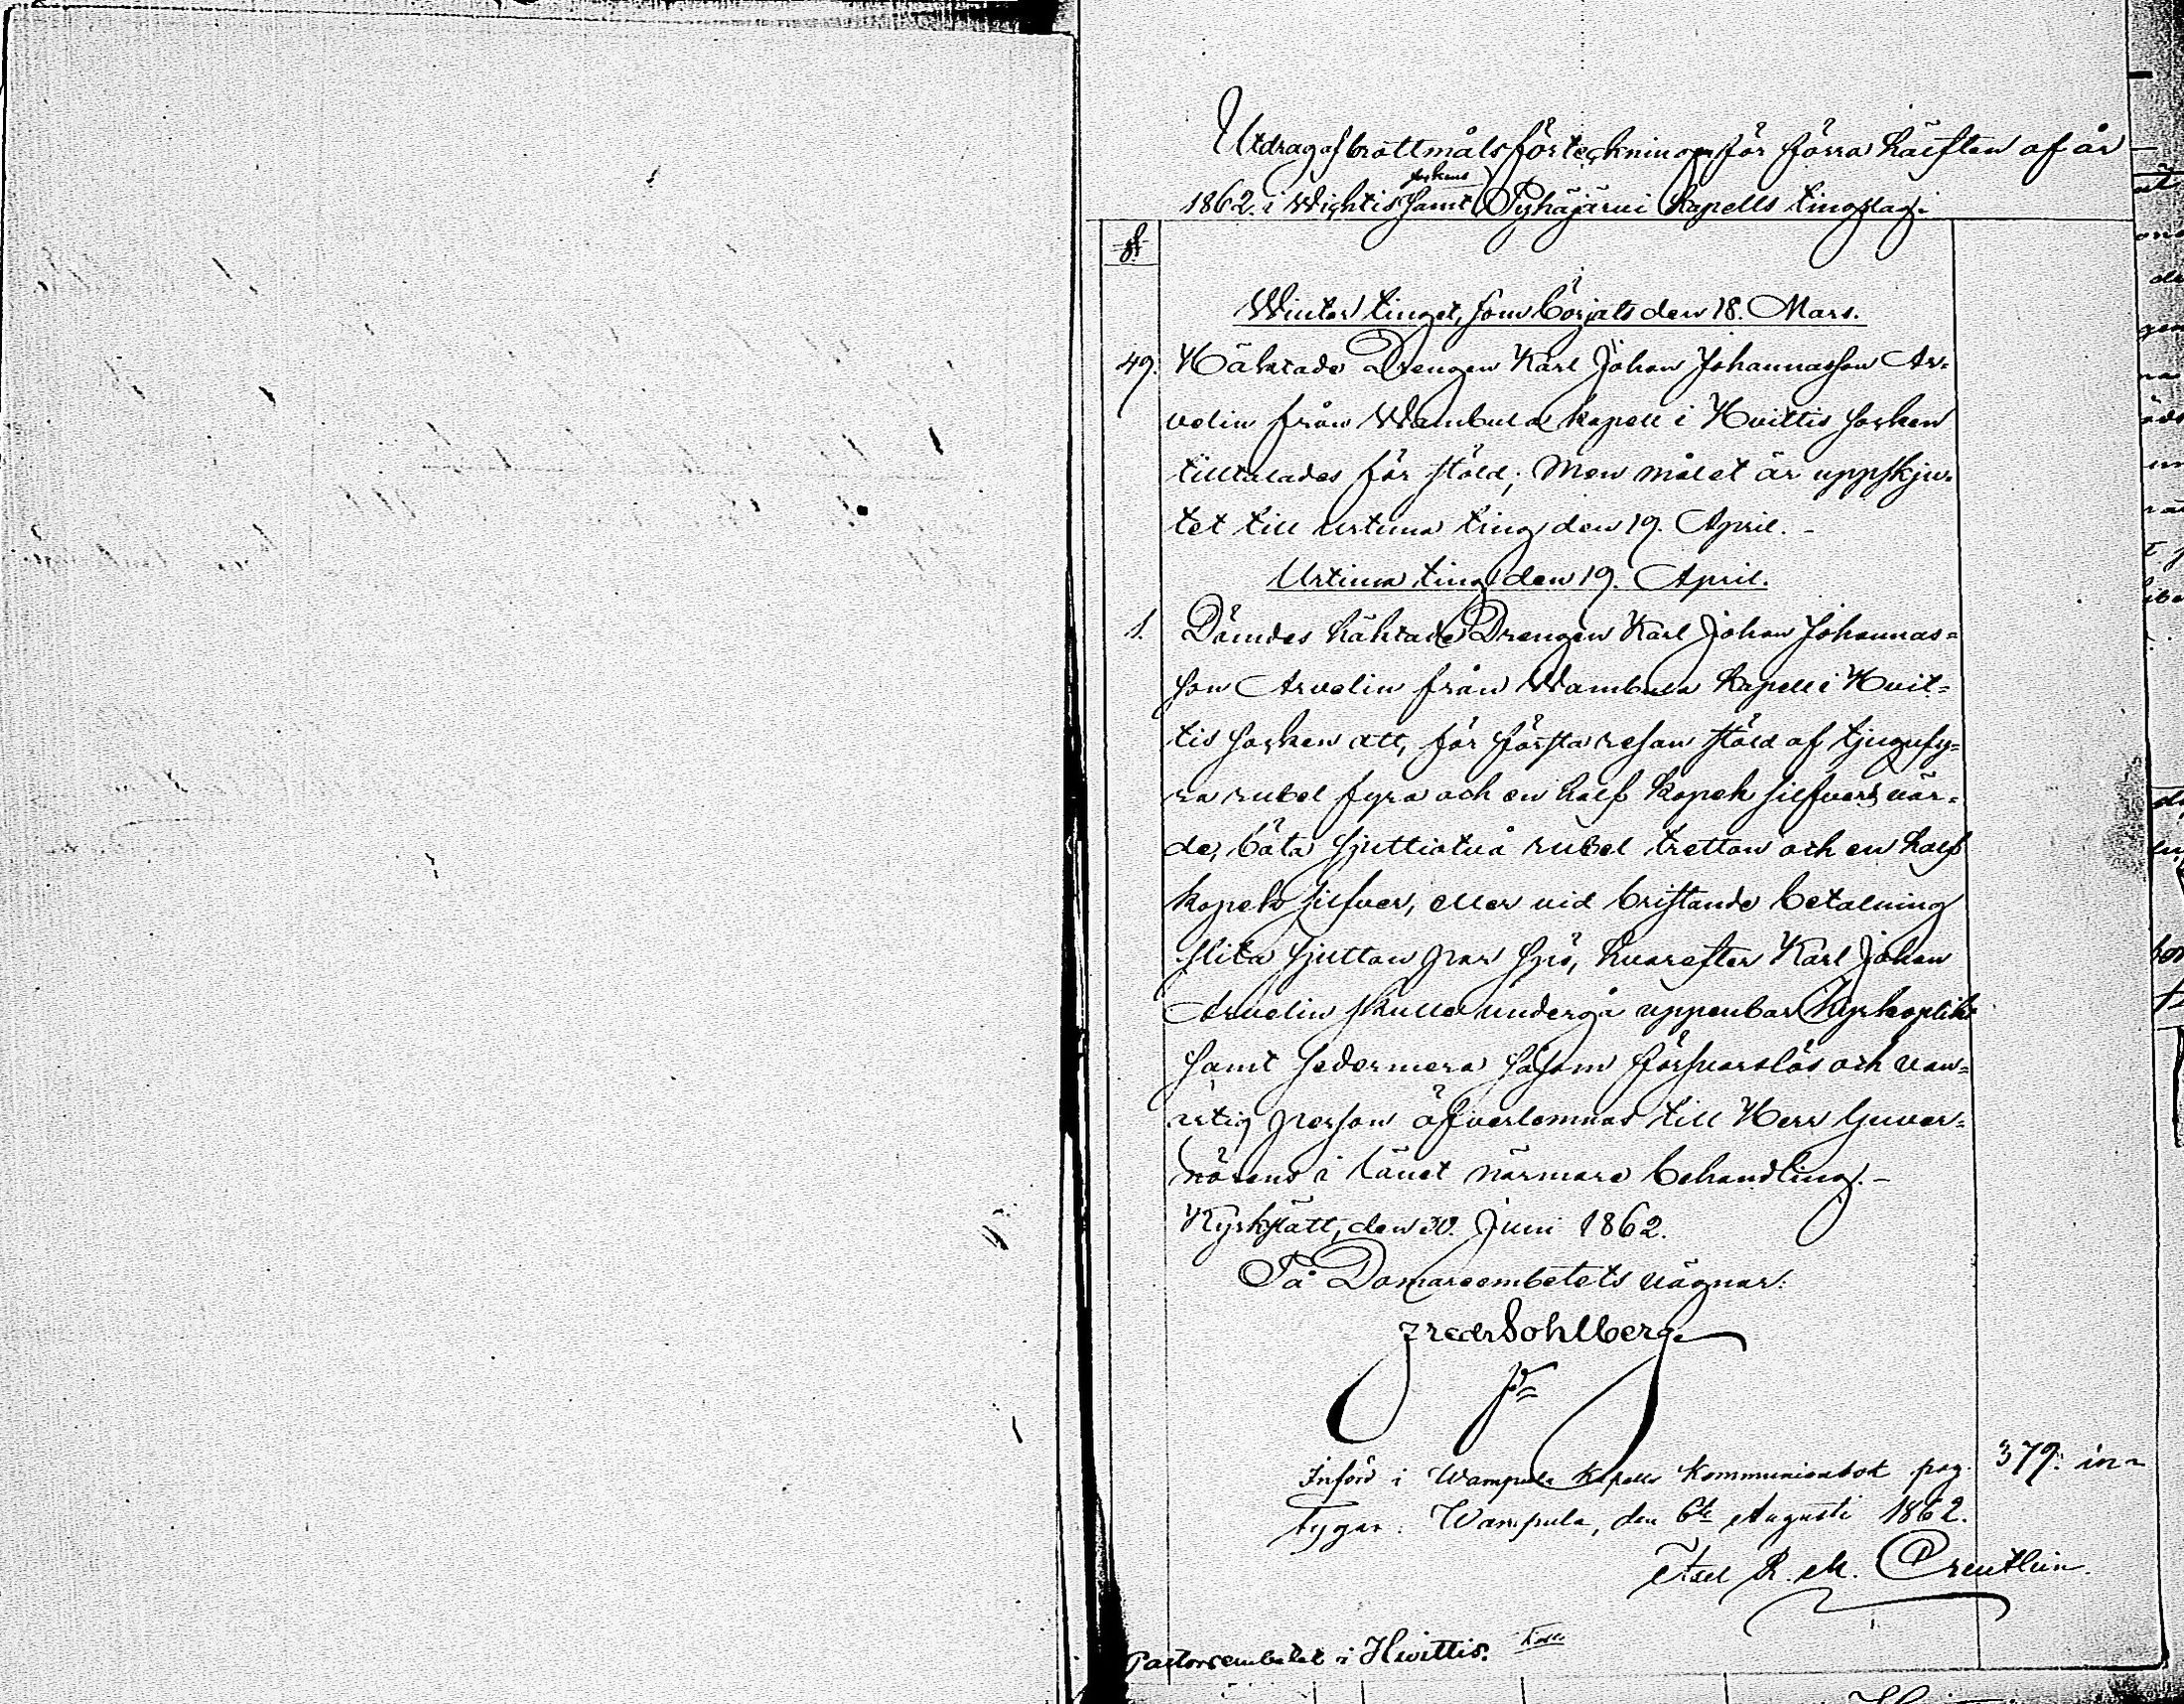 Utdrag af brottmålsförteckningen för förra hälften af år
socken
1862. i Wichtis samt Pyhäjärvi Kapells tingslag.
§§
Winter tinget, som börjats den 18. Mars.
49. Häktade Drengen Karl Johan Johannasson Ar-
velin från Wambula kapell i Hvittis socken
tilltalades för stöld; Men målet är uppskju-
tet till urtima ting den 19. April. -
Urtima ting den 19. April.
1. Dömdes häktade Drengen Karl Johan Johannas=
son Arvelin från Wambula Kapell i Hvit=
tis socken att, för första resan stöld af tjugufy=
ra rubel fyra och en half kopek silfvers vär=
de, böta sjuttiotvå rubel tretton och en half
kopek silfver, eller vid bristande betalning
slita sjutton par spö, hvarefter Karl Johan
Arvelin skulle undergå uppenbar Kyrkoplikt
samt sedermera såsom försvarslös och van=
artig person öfverlemnas till Herr Guver=
nörens i länet närmare behandling. -
Kyrkslätt, den 30. Juni 1862.
På Domareembetets vägnar:
Fredr Sohlberg
Införd i Wampula Kapells Kommunionbok pag. 379. in-
tygar. Wampula, den 6te Augusti 1862.
Axel R. M. Creutlein.
Pastorsembetet i Hvittis.